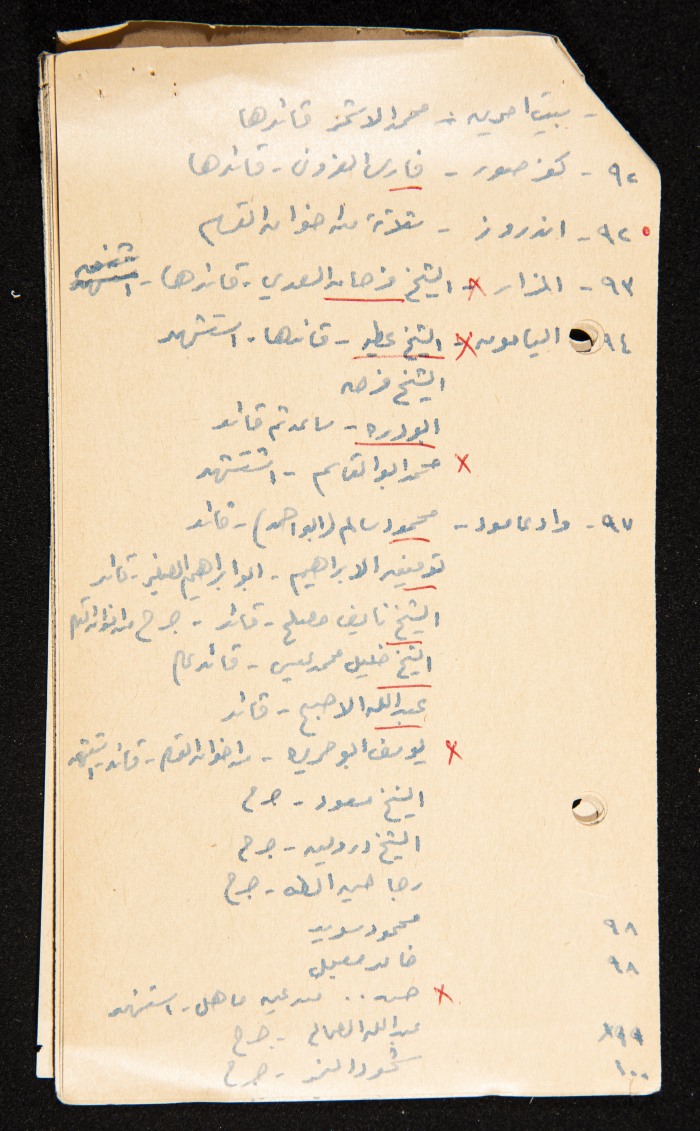 - بيت امرين - محمد الاشقر قائدها
٩٢ - كفر صور - فارس العزوني - قائدها
٩٢ - اندروز - ثلاثة من اخوان القسام
٩٣ - المزار - الشيخ فرحان السعدي - قائدها - استشهد
٩٤ اليامون - الشيخ عطيه - قائدها - استشهد
الشيخ فرحه
ابو دره - ساعد ثم قائد
محمد ابو القاسم - استشهد
٩٧ - واد عامود - محمود سالم (ابو احمد) - قائد
توفيق الابراهيم - ابو ابراهيم الصغير - قائد
الشيخ نايف مصلح - قائد - جرح من اخوان القسام
الشيخ خليل محمد عيسى - قائد عام
عبدالله الاصبح - قائد
يوسف ابو - من اخوان القسام - قائد - استشهد
الشيخ سعود - جرح
الشيخ درويش - جرح
رجا - جرح
٩٨ محمود سويد
٩٨ خالد
من عين ماهل - استشهد
٩٩ عبدالله - جرح
١٠٠ - جرح